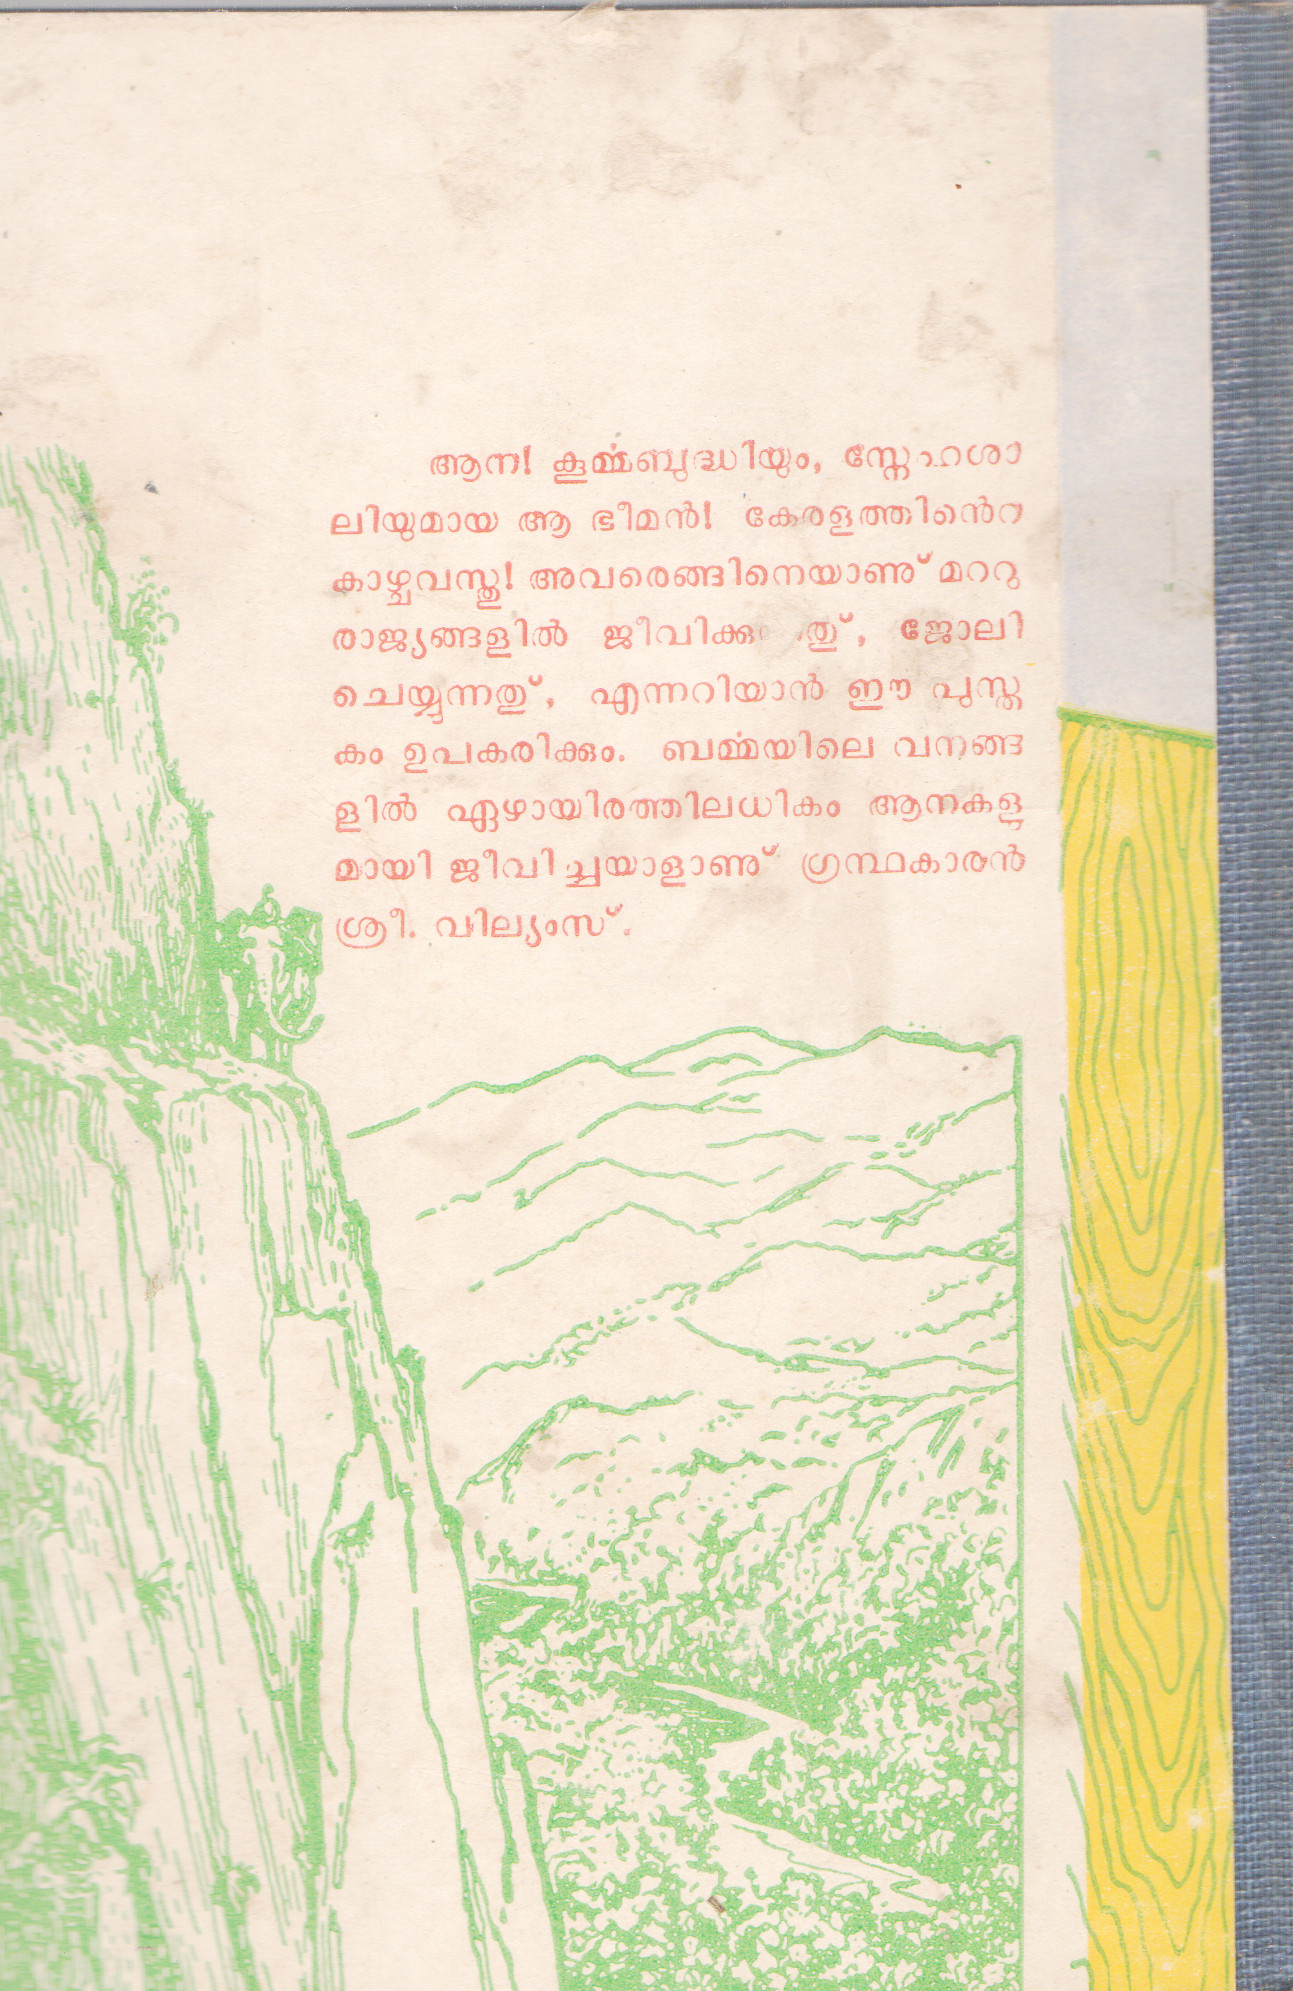 ആന! കൂൎമ്മബുദ്ധിയും, സ്നേഹശാ
ലിയുമായ ആ ഭീമൻ! കേരളത്തിൻെറ
കാഴ്ചവസ്തു! അവരെങ്ങിനെയാണു് മററു
രാജ്യങ്ങളിൽ ജോലി
ചെയ്യുന്നതു്, എന്നറിയാൻ ഈ പുസ്ത
കം ഉപകരിക്കും. ബൎമ്മയിലെ വനങ്ങ
ളിൽ ഏഴായിരത്തിലധികം ആനകളു
മായി ജീവിച്ചയാളാണു് ഗ്രന്ഥകാരൻ
ശ്രീ. വില്യംസ്.